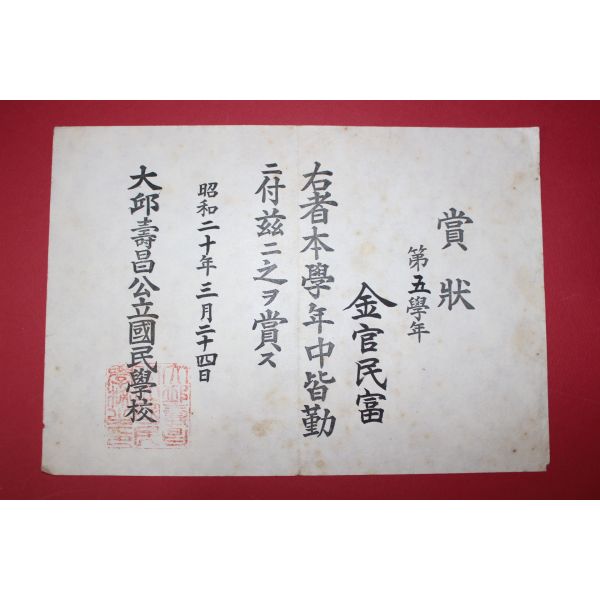 賞狀
第五學年
金官民富
右者本學年中皆勤
ニ付茲ニ之ヲ賞ス
昭和二十年三月二十四日
大邱壽昌公立國民學校